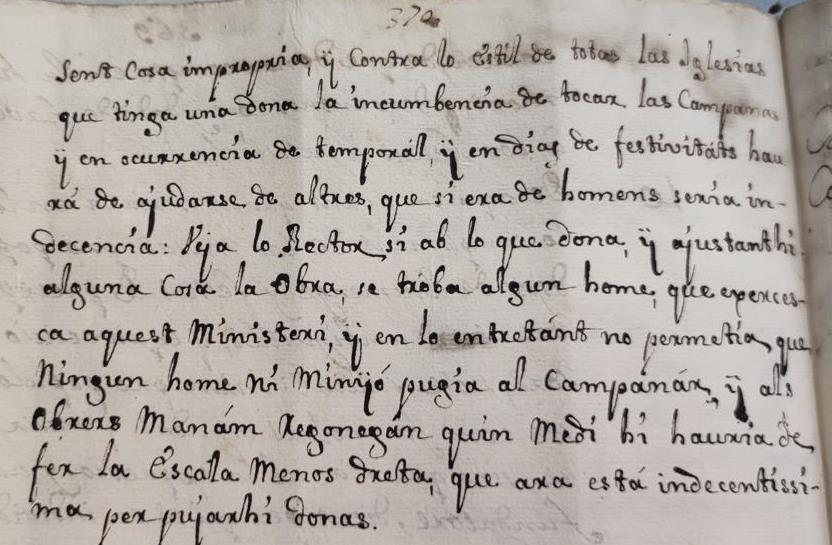 370.
Sent Cosa impropria, ÿ Contra lo éstil de totas las Iglesias
que tinga una dona la incumbencia de tocar las Campanas
ÿ en ocurrencia de temporál, ÿ en dias de festivitáts hau
rá de ajudarse de altres, que si era de homens seria in-
decencia: Veja lo Rector, si ab lo que dona, ÿ ajustanthi
alguna Cosa la Obra, se troba algun home, que exerces-
ca aquest Ministeri, ÿ en lo entretánt no permetia, que
Ningun home ni Minÿó pugia al Campanár, ÿ als
Obrers Manám Regonegán quin Medi hi hauria de
fer la Éscala Menos dreta, que ara está indecentissi-
ma per pujarhi donas.